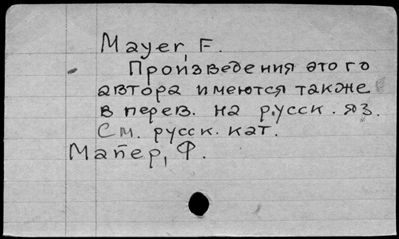 Mayer, F.
Произведения этого
автора имеются также
в перев. на русск. яз.
См. русск. кат.
Майер, Ф.